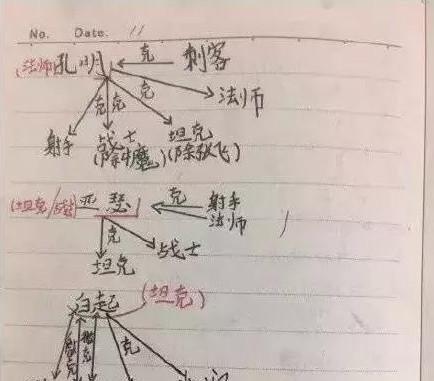 No. Date. 11
(法师)孔明 克 刺客
克 克 克 法师
射手 战士 坦克
(除牛魔) (除张飞)
(坦克/战士) 亚瑟 克 射手
法师
克
坦克 战士
白起 (坦克)
克 克 克